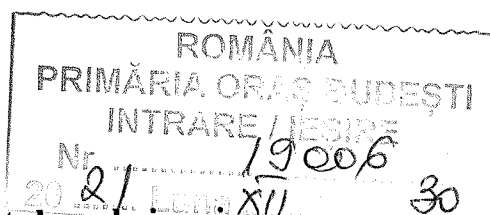 ROMÂNIA
PRIMĂRIA ORAȘ BUDEȘTI
INTRARE / IEȘIRE
Nr. 19006
20 21 Luna XII 30